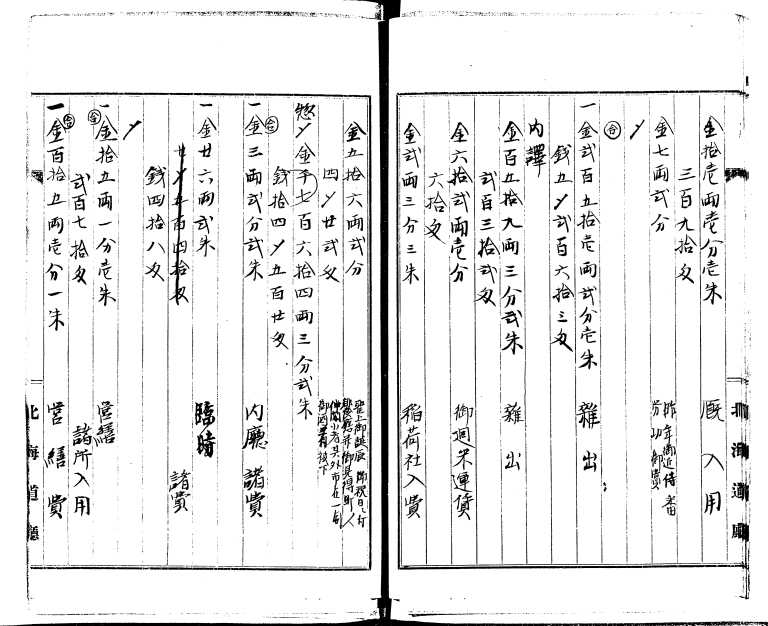 金拾壱両壱分壱朱 厩入用
三百九拾文
金七両弐分
〆
㊎
一金弐百五拾壱両弐分壱朱 雑出
銭五〆弐百六拾三文
内譯
金百五拾九両三分弐朱 雑出
弐百三拾弐文
金六拾弐両壱分 御廻米運賃
六拾文
金弐両三分三朱 稲荷社入費
北海道廳
金五拾六両弐分 聖上御誕辰
四〆廿弐文
惣〆金千七百六拾四両三分弐朱
銭拾四〆五百廿文
一金三両弐分弐朱 内廳諸費
一金廿六両弐朱 臨時諸費
廿〆五百四拾文
銭四拾八文
〆
一金拾五両一分壱朱 営繕諸所入用
弐百七拾文
一金百拾五両壱分一朱 営繕費
北海道廳